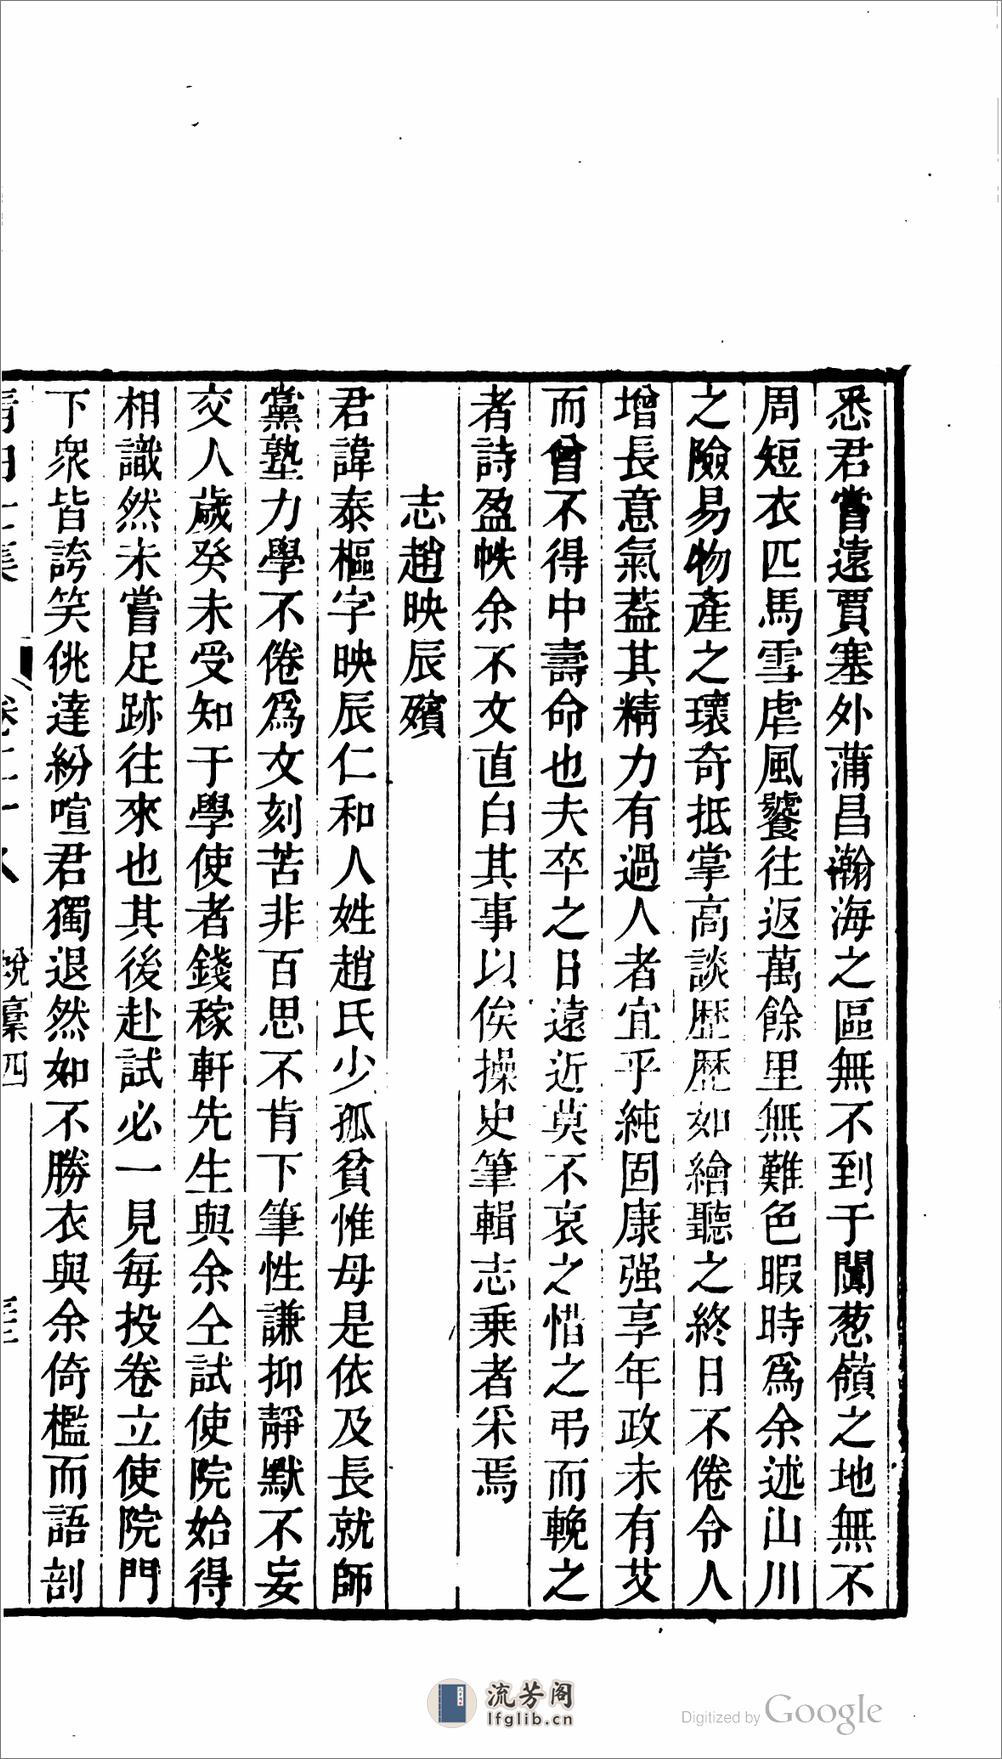 悉君嘗遠賈塞外蒲昌瀚海之區無不到于闐葱嶺之地無不
周短衣匹馬雪虐風饕往返萬餘里無難色暇時爲余述山川
之險易物產之瓌奇抵掌高談歷歷如繪聽之終日不倦令人
增長意氣葢其精力有過人者宜乎純固康强享年政未有艾
而曾不得中壽命也夫卒之日遠近莫不哀之惜之弔而輓之
者詩盈帙余不文直白其事以俟操史筆輯志乘者采焉
志趙映辰殯
君諱泰樞字映辰仁和人姓趙氏少孤貧惟母是依及長就師
黨塾力學不倦爲文刻苦非百思不肯下筆性謙抑靜默不妄
交人歲癸未受知于學使者錢稼軒先生與余仝試使院始得
相識然未嘗足跡往來也其後赴試必一見每投卷立使院門
下衆皆誇笑佻達紛喧君獨退然如不勝衣與余倚檻而語剖
卷二十八
稾四
流芳阁
lfglib.cn
Digitized by Google